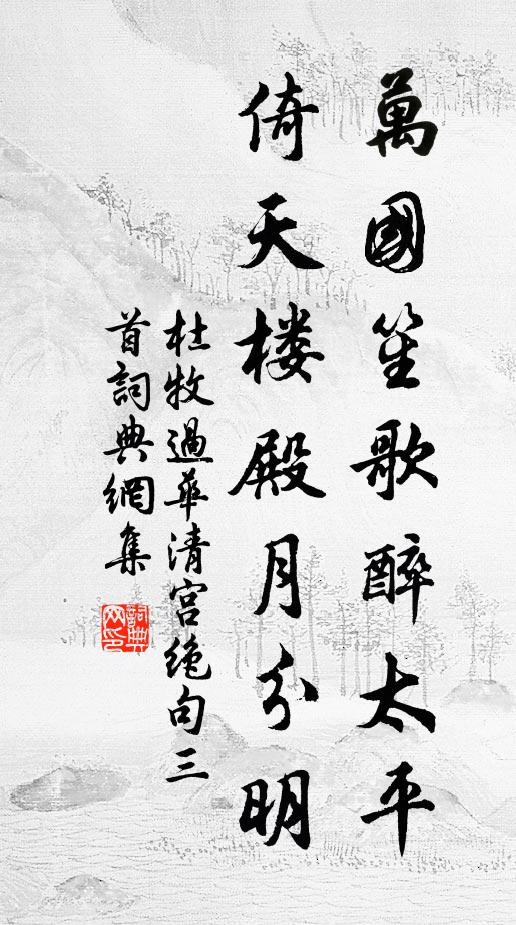 萬國笙歌醉太平
倚天楼殿月分明
杜牧過華清宮绝句三
首詞典網集
詞典网印